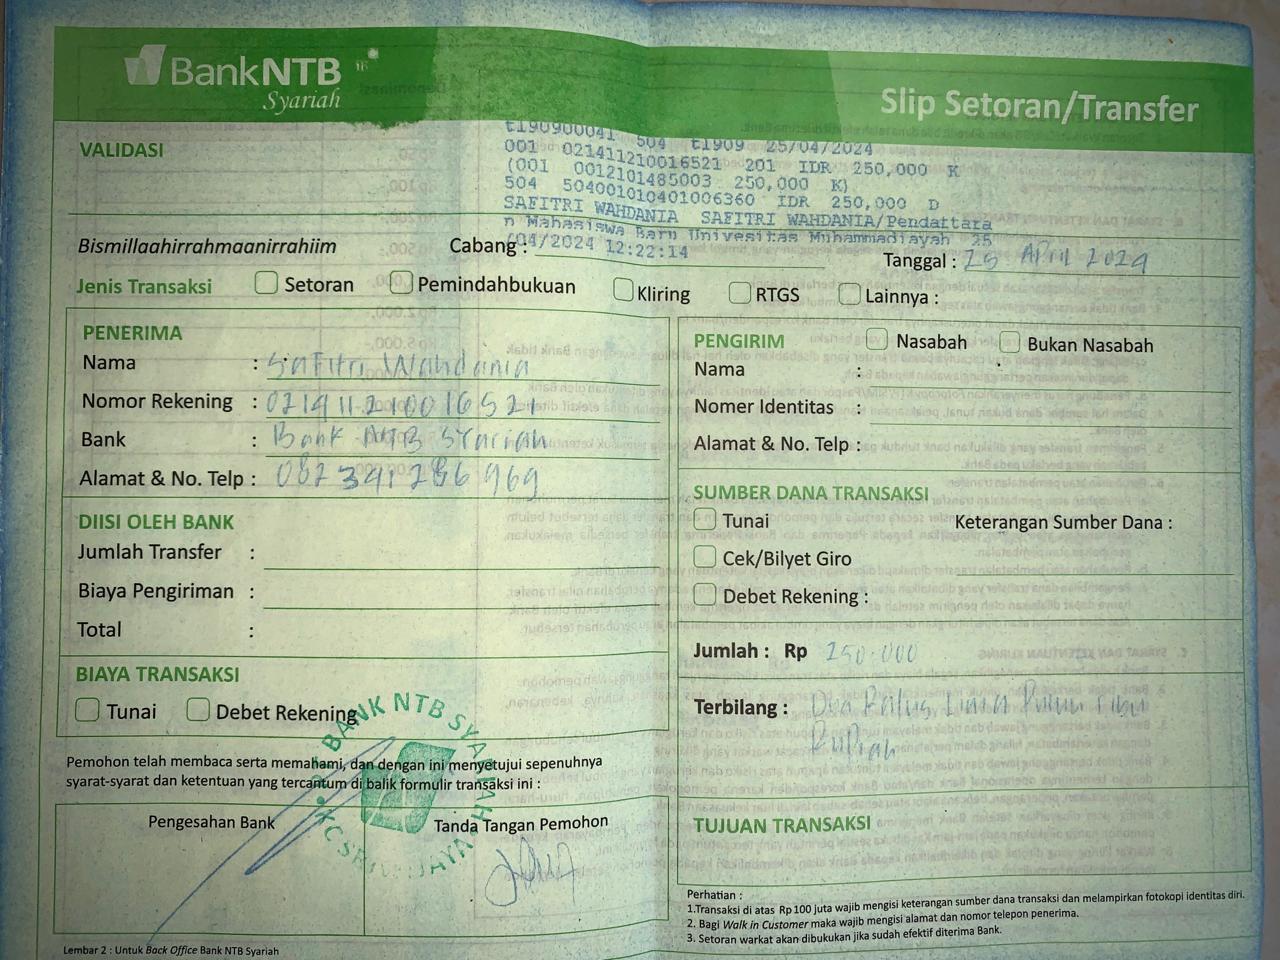 BankNTB
Syariah
Slip Setoran/Transfer
VALIDASI
t190900041 504 t1909 25/04/2024
001 021411210016521 201 IDR 250,000 K
(001 0012101485003 250,000 K)
504 504001010401006360 IDR 250,000 D
SAFITRI WAHDANIA SAFITRI WAHDANIA/Pendattara
n Mahasiswa Baru Universitas Muhammadiayah 25
/04/2024 12:22:14
Bismillaahirrahmaanirrahiim
Cabang :
Tanggal : 25 April 2024
Jenis Transaksi Setoran Pemindahbukuan Kliring RTGS Lainnya :
PENERIMA
Nama : Safitri Wahdania
Nomor Rekening : 021411210016521
Bank : Bank NTB Syariah
Alamat & No. Telp : 082341286969
DIISI OLEH BANK
Jumlah Transfer :
Biaya Pengiriman :
Total :
BIAYA TRANSAKSI
Tunai Debet Rekening
PENGIRIM Nasabah Bukan Nasabah
Nama :
Nomer Identitas :
Alamat & No. Telp :
SUMBER DANA TRANSAKSI
Tunai Keterangan Sumber Dana :
Cek/Bilyet Giro
Debet Rekening :
Jumlah : Rp 250.000
Terbilang : Dua Ratus Lima Puluh ribu
Rupiah
TUJUAN TRANSAKSI
Pemohon telah membaca serta memahami, dan dengan ini menyetujui sepenuhnya
syarat-syarat dan ketentuan yang tercantum di balik formulir transaksi ini :
Pengesahan Bank
Tanda Tangan Pemohon
BANK NTB SYARIAH
Perhatian :
1.Transaksi di atas Rp100 juta wajib mengisi keterangan sumber dana transaksi dan melampirkan fotokopi identitas diri.
2. Bagi Walk in Customer maka wajib mengisi alamat dan nomor telepon penerima.
3. Setoran warkat akan dibukukan jika sudah efektif diterima Bank.
Lembar 2 : Untuk Back Office Bank NTB Syariah